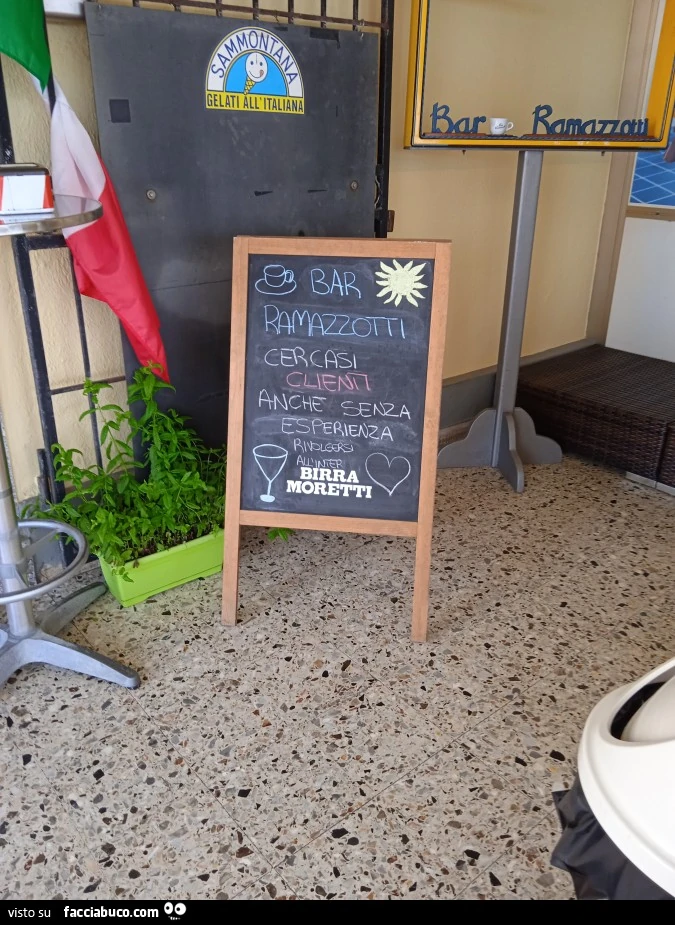 SAMMONTANA
GELATI ALL'ITALIANA
Bar Ramazzotti
BAR
RAMAZZOTTI
CERCASI
CLIENTI
ANCHE SENZA
ESPERIENZA
RIVOLGERSI
ALL'INTER
BIRRA
MORETTI
visto su facciabuco.com